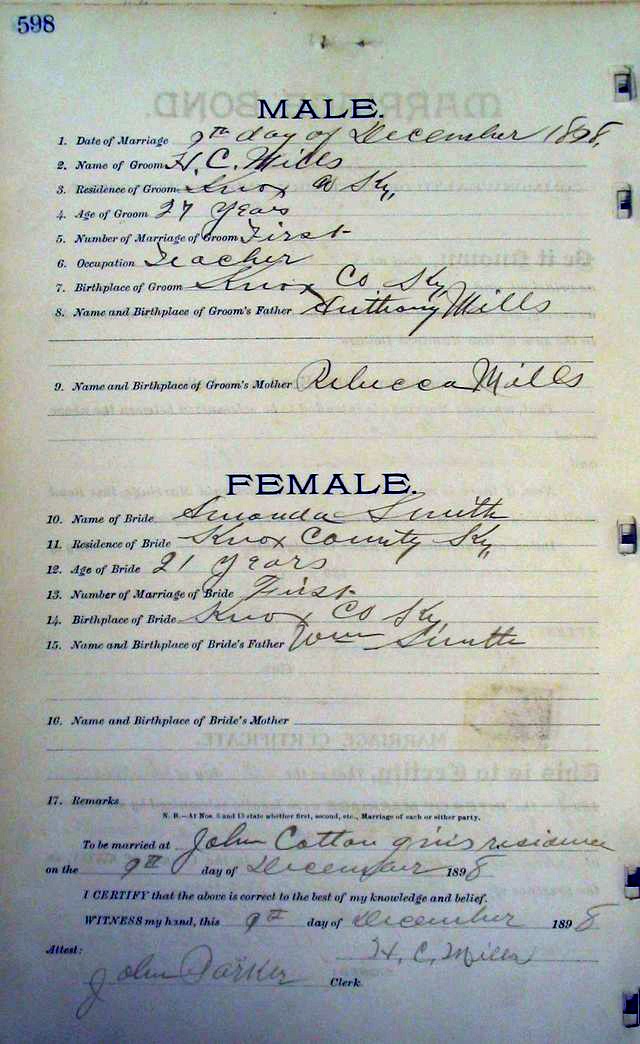 598
MALE.
1. Date of Marriage 9th day of December 1898
2. Name of Groom H. C. Mills
3. Residence of Groom Knox Co Ky,,
4. Age of Groom 27 years
5. Number of Marriage of Groom First
6. Occupation Teacher
7. Birthplace of Groom Knox Co. Ky,,
8. Name and Birthplace of Groom's Father Anthony Mills
9. Name and Birthplace of Groom's Mother Rebecca Mills
FEMALE.
10. Name of Bride Amanda Smith
11. Residence of Bride Knox County Ky,,
12. Age of Bride 21 years
13. Number of Marriage of Bride First
14. Birthplace of Bride Knox Co Ky,
15. Name and Birthplace of Bride's Father Wm Smith
16. Name and Birthplace of Bride's Mother
17. Remarks
N. B.—At Nos. 5 and 13 state whether first, second, etc., Marriage of each or either party.
To be married at John Cotton residence
on the 9th day of December 1898
I CERTIFY that the above is correct to the best of my knowledge and belief.
WITNESS my hand, this 9th day of December 1898
Attest: H. C. Mills
John Parker Clerk.